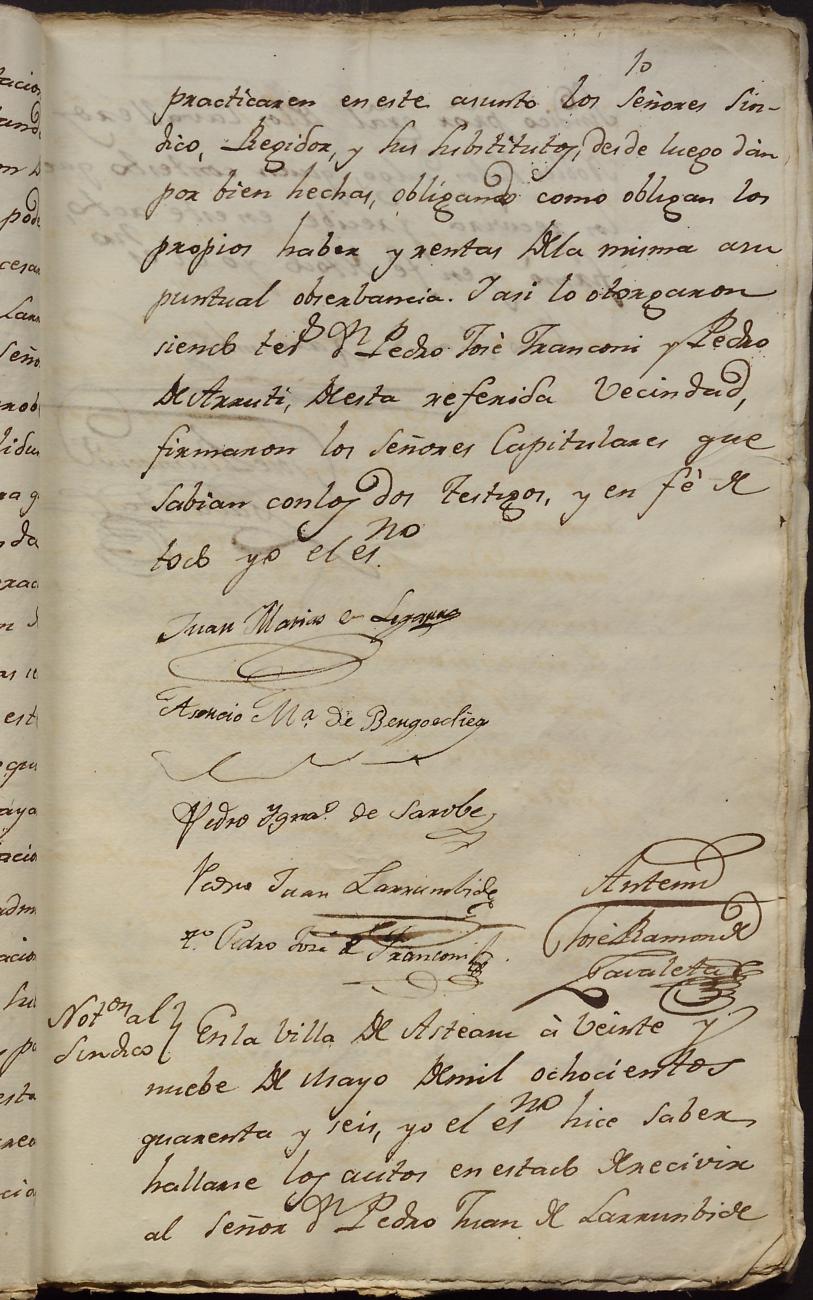 10
practicaren en este asunto los Señores Sin-
dico, Regidor, y sus substitutos, desde luego dan
por bien hechas, obligando como obligan los
propios haber y rentas de la misma a su
puntual obserbancia. Y asi lo otorgaron
siendo tes.ᵒˢ Dⁿ Pedro José Franconi y Pedro
de Arruti, de esta referida Vecindad,
firmaron los Señores Capitulares que
Sabian con los dos testigos, y en fè de
todo yo el es.ⁿᵒ
Juan Matias de
Asencio Mª. de Bengoechea
Pedro Ignaº. de Sarobe
Pedro Juan Larrumbide
tº. Pedro José de Franconi
Antemi
José Ramon de
Zavaleta
Notᵒⁿ al
Sindico
En la Villa de Asteasu à Veinte y
nuebe de Mayo de mil ochocientos
quarenta y seis, yo el esⁿᵒ hice saber
hallarse los autos en estado de recivir
al Señor Dⁿ Pedro Juan de Larrunbide